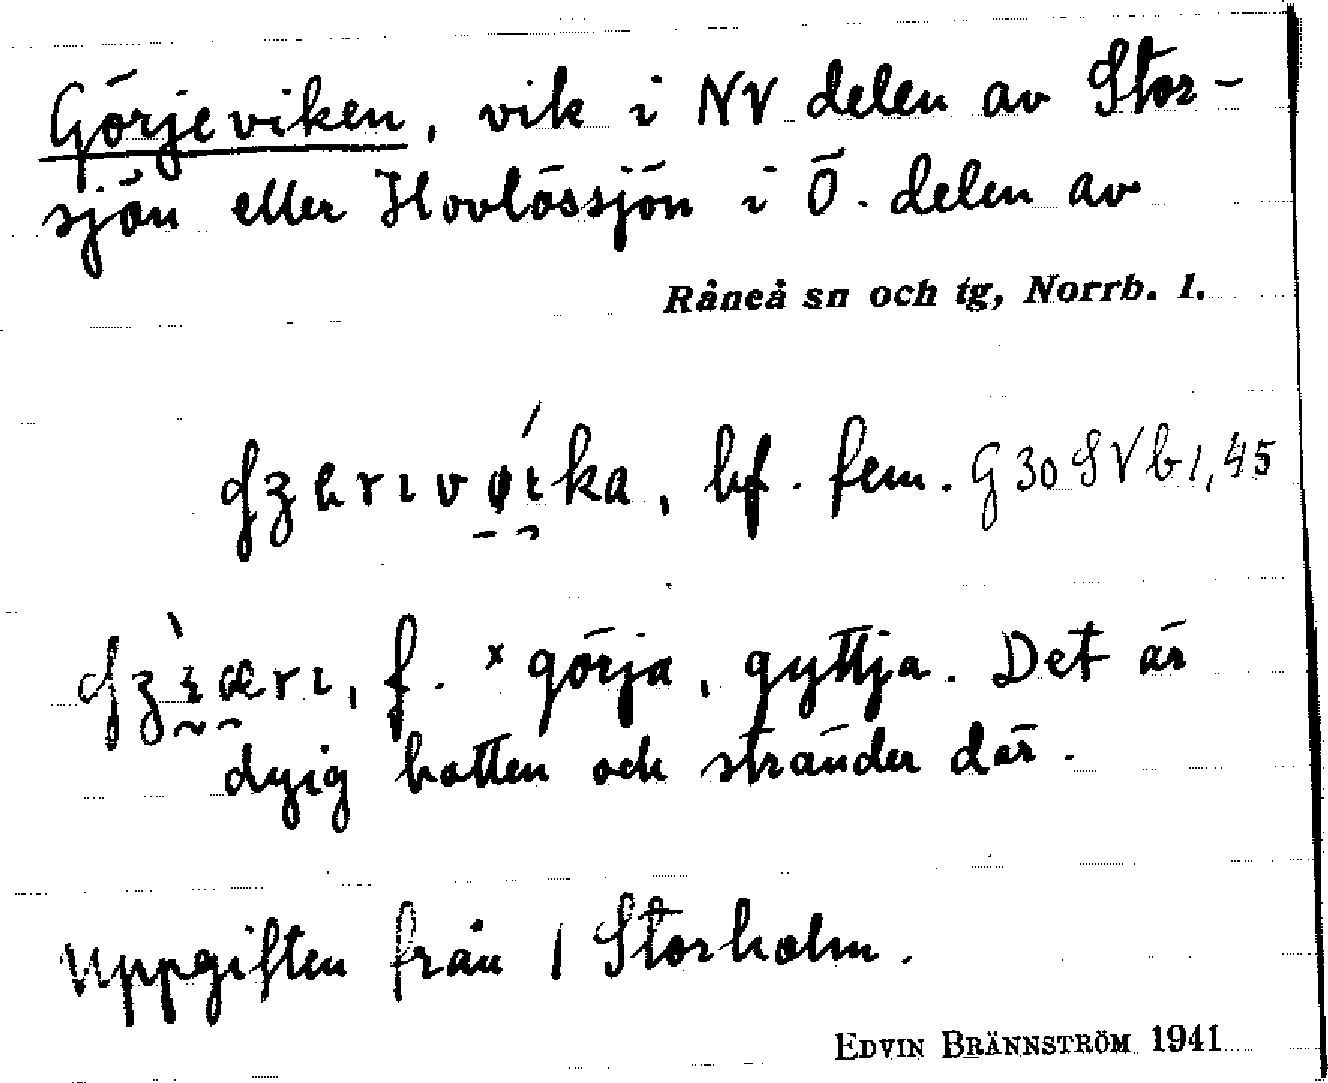 Görjeviken, vik i NV delen av Stor-
sjön eller Hovlössjön i Ö. delen av
Råneå sn och tg, Norrb. l.
bf. fem. G 30 SV b 1,45
f. × görja, gyttja. Det är
dyig botten och stränder där.
Uppgiften från 1 Storholm.
EDVIN BRÄNNSTRÖM 1941